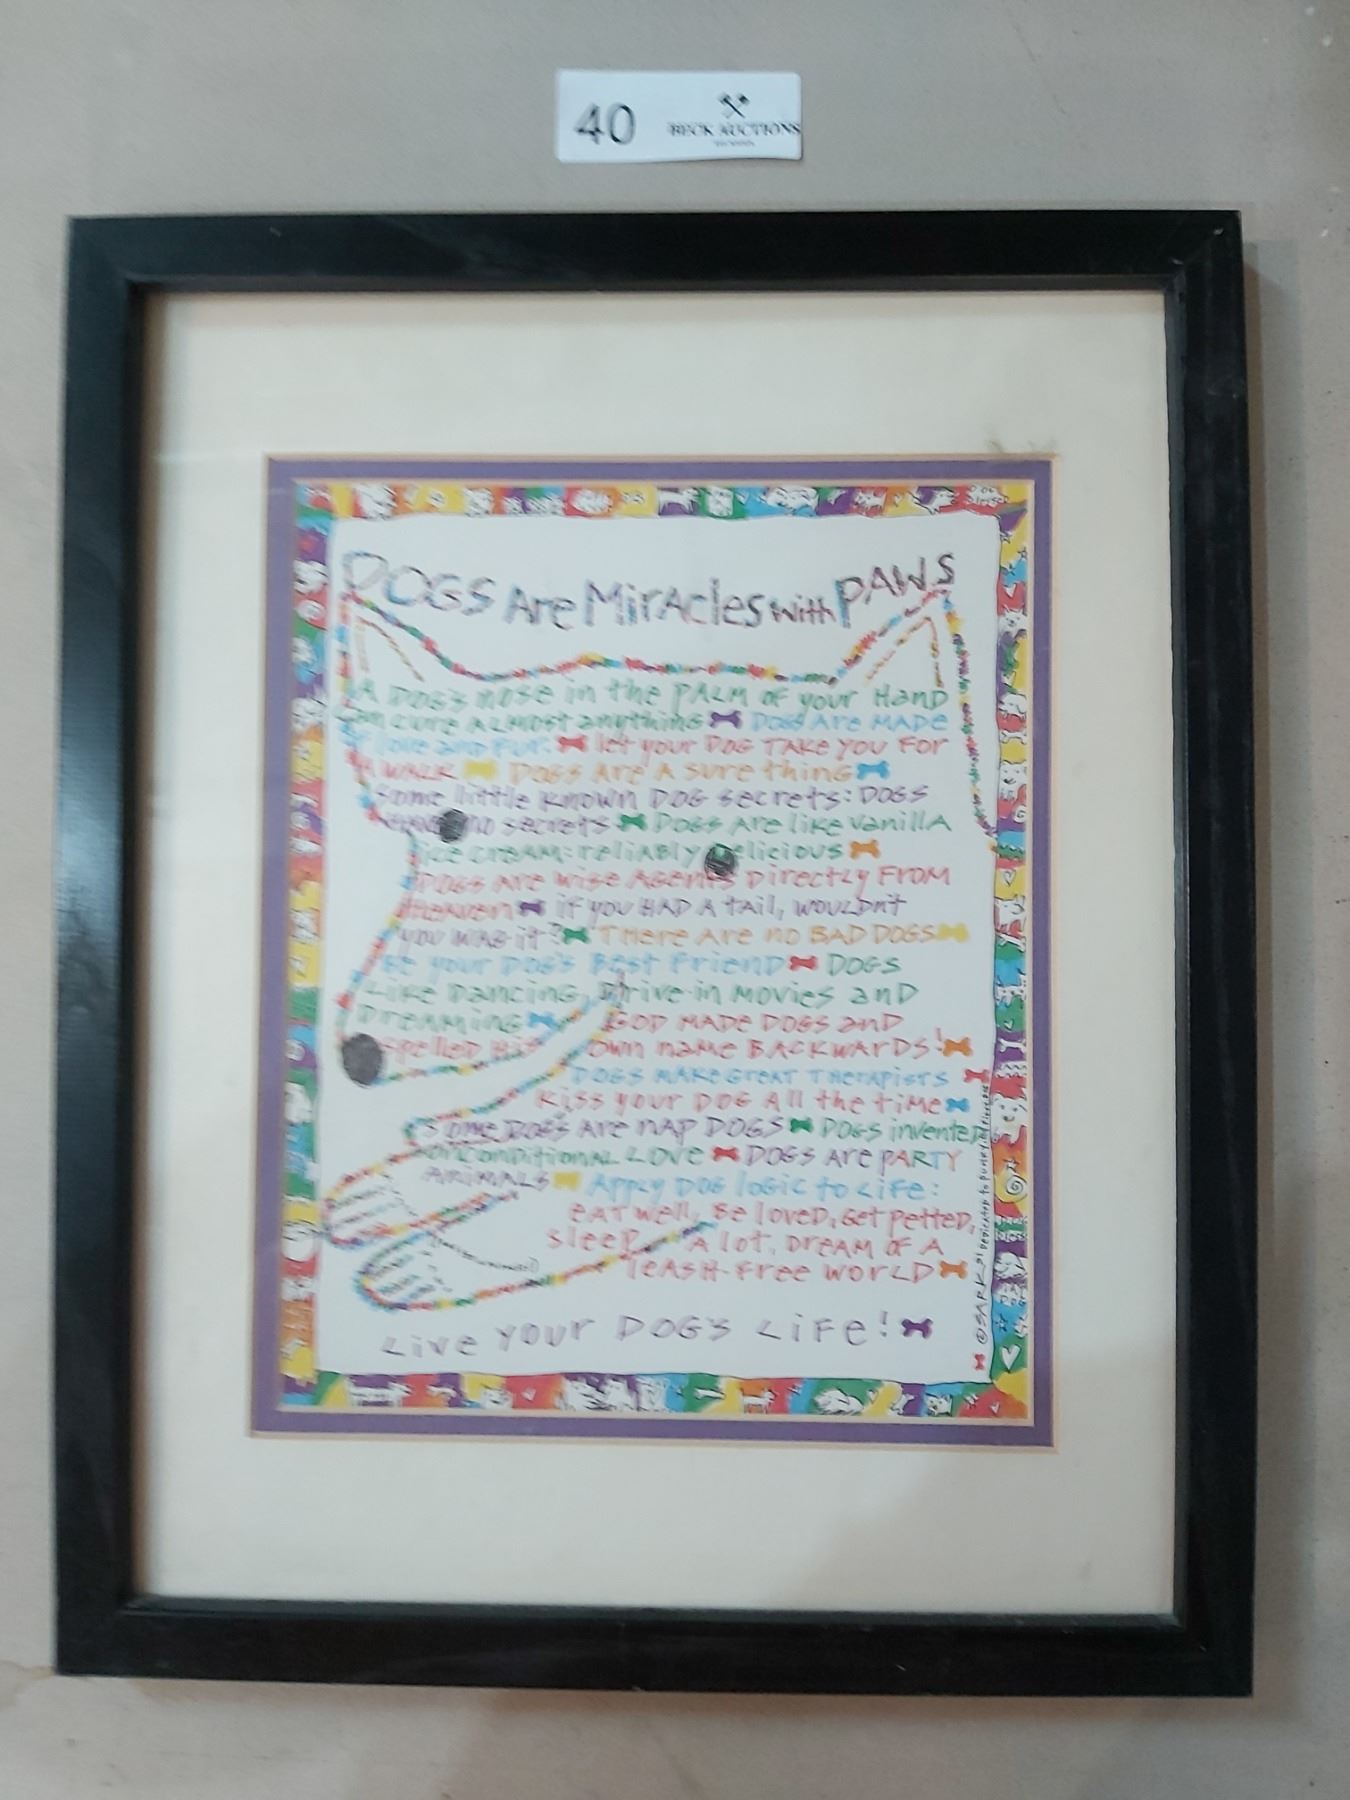 40 BECK AUCTIONS
DOGS Are Miracles with PAWS
A DOG'S nose in the PALM of your Hand
can cure ALMOST anything DOGS Are MADE
of love and fur. let your DOG TAKE YOU FOR
A WALK DOGS Are A sure thing
some little known DOG secrets: DOGS
have no secrets DOGS Are like vanilla
ice cream: reliably delicious
DOGS Are wise Agents Directly From
Heaven if you HAD A tail, wouldn't
you WAG it? THERE Are no BAD DOGS
Be your DOG'S Best Friend DOGS
Like Dancing, Drive-in Movies and
Dreaming GOD MADE DOGS and
spelled His own name BACKWARDS!
DOGS MAKE Great Therapists
Kiss your DOG All the time
Some DOGS Are nap DOGS DOGS invented
unconditional Love DOGS Are PARTY
Animals Apply DOG logic to Life:
eat well, Be loved, Get petted,
sleep A lot, Dream of A
leash-free world
Live your DOG'S Life!
©SARK 91 Dedicated to